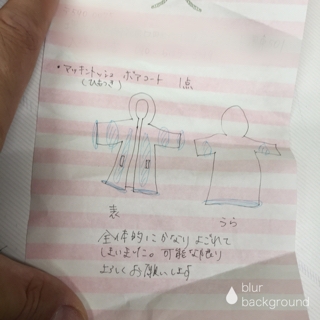 ボアコート 1点
(ひもつき)
表
うら
全体的にかなりよごれて
しまいました。可能な限り
よろしくお願いします
blur
background